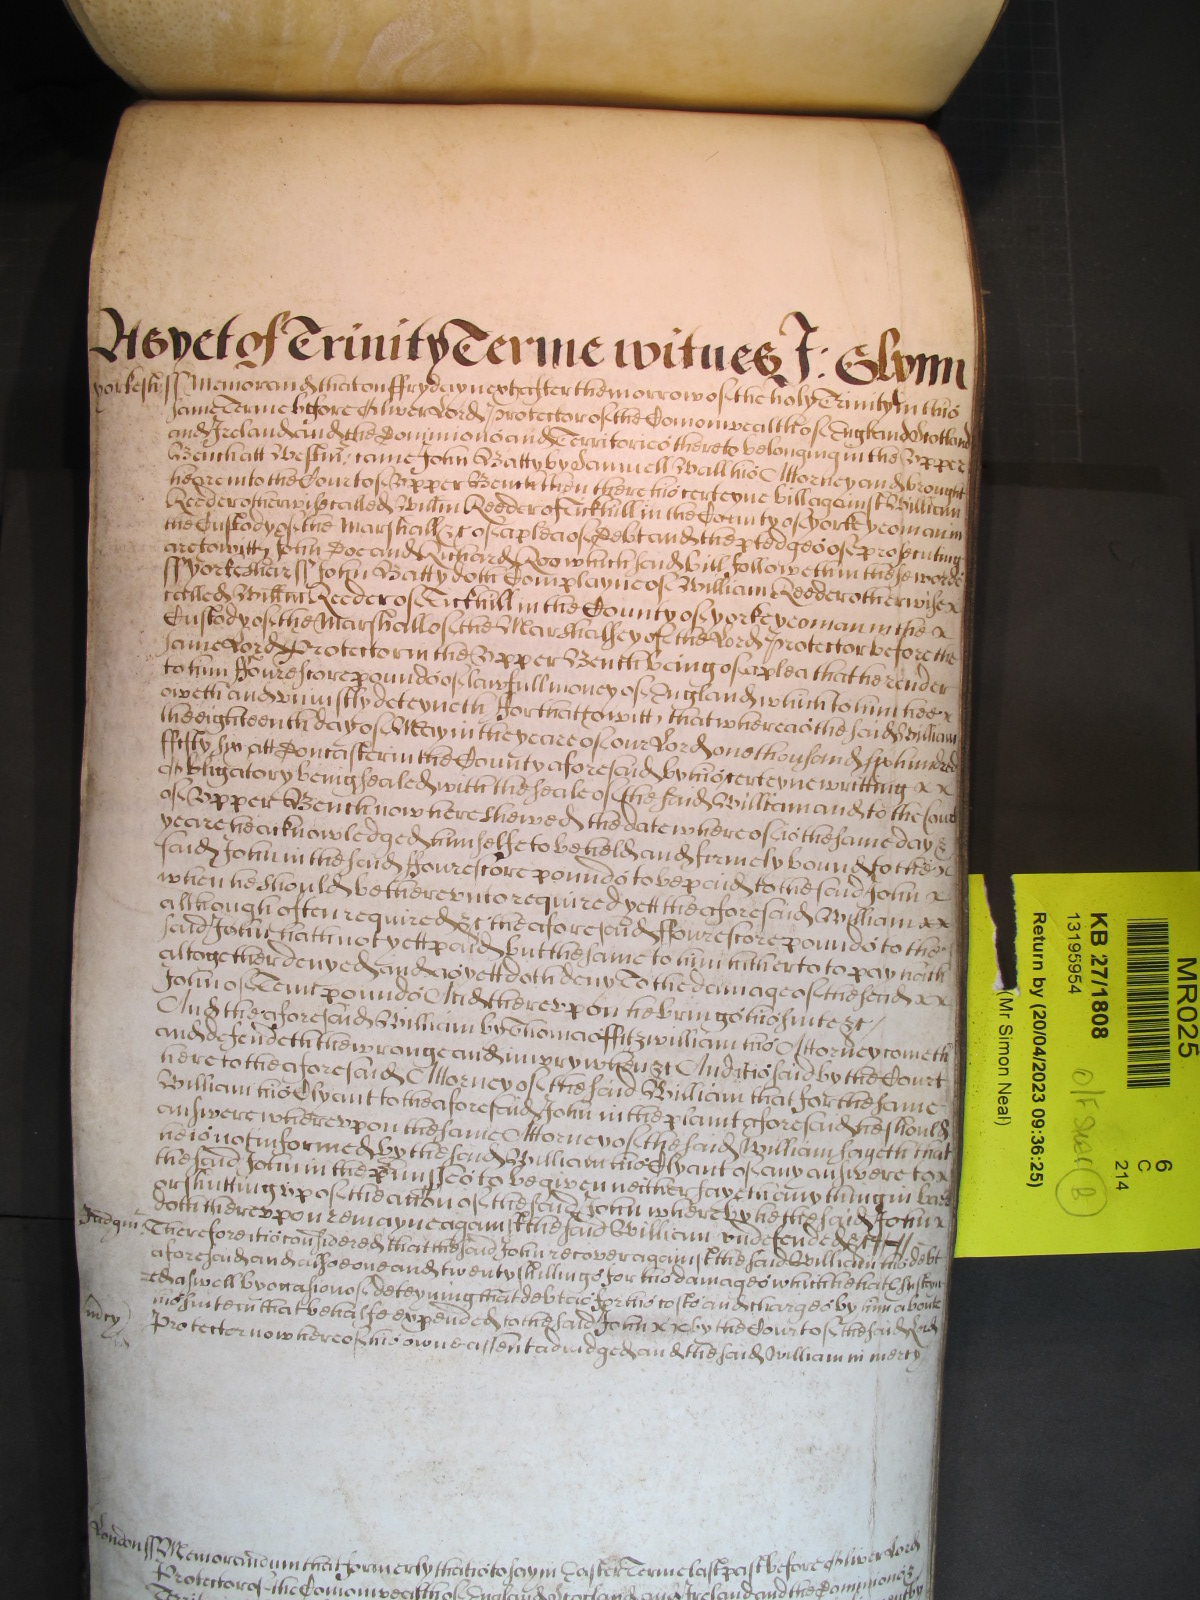 As yet of Trinity Terme witnes J: Glynn
yorkesh: ss Memorand that on ffryday next after the morrow of the holy Trinity in this
same Terme before Oliver Lord Protector of the Comonwealth of England Scotland
and Ireland and the Dominions and Territories thereto belonging in the Vpper
Bench att Westm: came John Batty by Samuell Wall his Attorney and brought
heere into the Court of Vpper Bench then there his certeyne bill against William
Reeder otherwise called Willm Reeder of Tickhill in the County of york yeoman in
the Custody of the Marshall &c of a plea of Debt and the pledges of prosecuting
are to witt John Doe and Richard Roo which said bill followeth in these words
ss yorkeshier ss John Batty doth Complayne of William Reeder otherwise x
called Willm Reeder of Tickhill in the County of york yeoman in the x
Custody of the Marshall of the Marshalsey of the Lord Protector before the
same Lord Protector in the Vpper Bench being of a plea that he render
to him ffourescore pounds of lawfull money of England which to him hee x
oweth and uniustly deteyneth ffor that to witt, that whereas the said William
the eighteenth day of May in the yeare of our Lord one thousand six hundred
ffifty six att Doncaster in the County aforesaid by his certeyne writting x x
obligatory being sealed with the seale of the said William and to the Court
of Vpper Bench now here shewed the date whereof is the same day &
yeare he acknowledged himselfe to be held and firmely bound to the x
said John in the said ffourescore pounds to be paid to the said John x
when he should be therevnto required yett the aforesaid William x x
although often required &c the aforesaid ffourescore pounds to the
said John hath not yett paid but the same to him hitherto to pay hath
altogether denyed and as yett doth deny To the damage of the said x x
John of Tenn pounds And therevpon he brings his suite &c /
And the aforesaid William by Thomas ffitzwilliam his Attorney cometh
and defendeth the wronge and iniury when &c And it is said by the Court
here to the aforesaid Attorney of the said William that for the same
William his Clyant to the aforesaid John in the plaint aforesaid he should
answere wherevpon the same Attorney of the said William sayeth that
he is not informed by the said William his Clyant of any answere to x
the said John in the premisses to be given neither sayeth any thing in barr
or shutting vp of the action of the said John whereby he the said John x
doth therevpon remayne against the said William vndefended &c
Judgm: Therefore it is considered that the said John recover against the said William his debt
aforesaid and alsoe one and twenty shillings for his damages which he hath susteyn-
=ed aswell by occasion of deteyning that debt as for his costs and charges by him about
his suite in that behalfe expended to the said John x x by the Court of the said Lord
mcy Protector now here of his owne assent adiudged and the said William in mercy
London ss Memorandum that formerly that is to say in Easter Terme last past before Oliver Lord
Protector of the Comonwealth of England Scotland and Ireland and the Dominions &
MR025
6
C
214
KB 27/1808
13195954
Return by (20/04/2023 09:36:25)
(Mr Simon Neal)